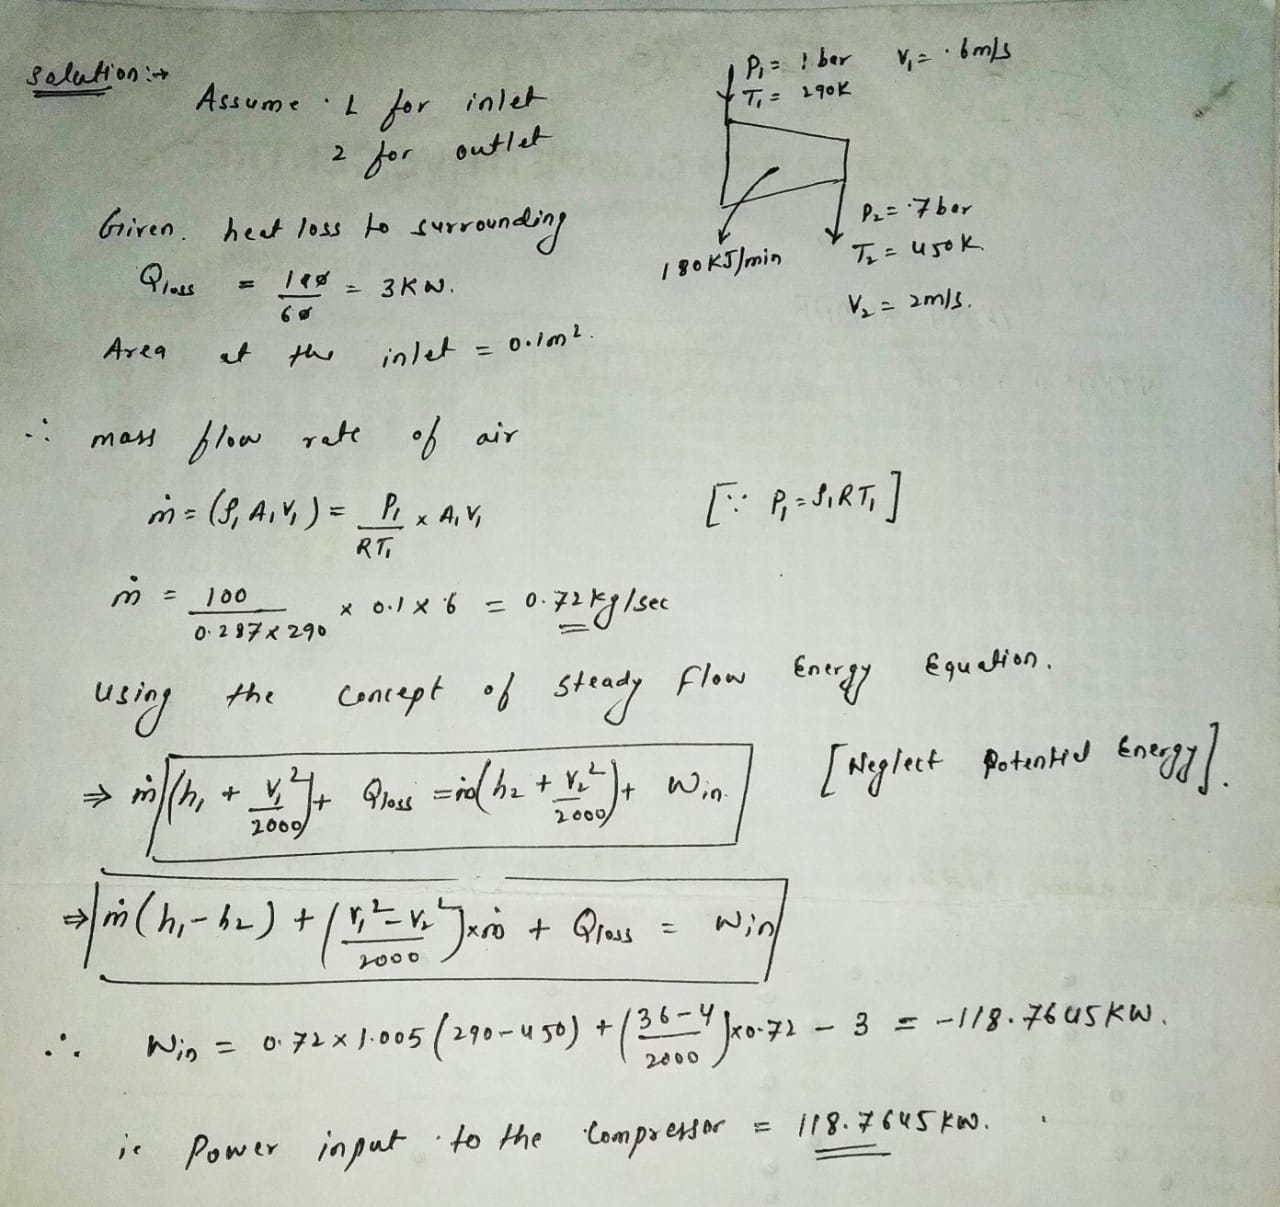 Solution:→
P₁ = 1 bar V₁ = ·6m/s
T₁ = 290K
Assume · 1 for inlet
2 for outlet
P₂ = ·7 bar
T₂ = 450K
V₂ = 2m/s.
180KJ/min
Given. heat loss to surrounding
Qloss = 180/60 = 3KW.
Area at the inlet = 0.1m².
∴ mass flow rate of air
ṁ = (ρ₁ A₁ V₁) = P₁/RT₁ × A₁V₁ [∵ P₁ = ρ₁RT₁]
ṁ = 100/0.287×290 × 0.1 × 6 = 0.72 kg/sec
using the concept of steady flow Energy Equation.
⇒ ṁ(h₁ + V₁²/2000) + Qloss = ṁ(h₂ + V₂²/2000) + Win. [Neglect Potential Energy].
⇒ ṁ(h₁-h₂) + (V₁²-V₂²/2000)×ṁ + Qloss = Win
∴ Win = 0.72×1.005(290-450) + (36-4/2000)×0.72 - 3 = -118.7645KW.
ie Power input to the Compressor = 118.7645KW.